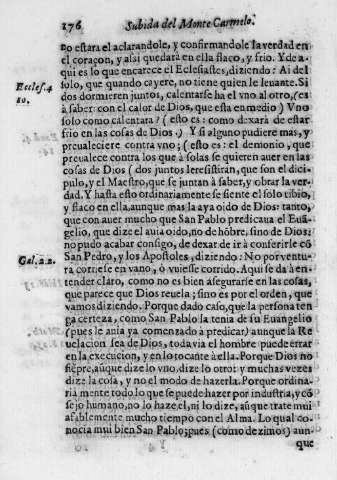 176 Subida del Monte Carmelo.
no estara el aclarandole, y confirmandole la verdad en
el coraçon, y assi quedarà en ella flaco, y frio. Y de a-
qui es lo que encarece el Eclesiastes, diziendo: Ai del
Eccles. 4
solo, que quando cayere, no tiene quien le leuante. Si
10.
dos durmieren juntos, calentarse ha el vno al otro, (es
à saber: con el calor de Dios, que esta en medio) Vno
solo como calentara? (esto es: como dexarà de estar
frio en las cosas de Dios.) Y si alguno pudiere mas, y
preualeciere contra vno; (esto es: el demonio, que
preualece contra los que à solas se quieren auer en las
cosas de Dios) dos juntos le resistiràn, que son el dici-
pulo, y el Maestro, que se juntan à saber, y obrar la ver-
dad. Y hasta esto ordinariamente se siente el solo tibio,
y flaco en ella, aunque mas la aya oido de Dios: tanto,
que con auer mucho que San Pablo predicaua el Euã-
gelio, que dize el auia oido, no de hõbre, sino de Dios:
no pudo acabar consigo, de dexar de ir à conferirle cõ
Gal. 2. 2.
San Pedro, y los Apostoles, diziendo: No por ventu-
ra corriese en vano, ò vuiesse corrido. Aqui se da à en-
tender claro, como no es bien asegurarse en las cosas,
que parece que Dios reuela; sino es por el orden, que
vamos diziendo. Porque dado caso, que la persona ten
ga certeza, como San Pablo la tenia de su Euangelio
(pues le auia ya comenzado à predicar) aunque la Re
uelacion sea de Dios, toda via el hombre puede errar
en la execucion, y en lo tocante à ella. Porque Dios no
siẽpre, aũque dize lo vno, dize lo otro: y muchas vezes
dize la cosa, y no el modo de hazerla. Porque ordina-
ria mente todo lo que se puede hazer por industria, y cõ
sejo humano, no lo haze el, ni lo dize, aũque trate mui
afablemente mucho tiempo con el Alma. Lo qual co-
nocia mui bien San Pablo; pues (como dezimos) aun-
que